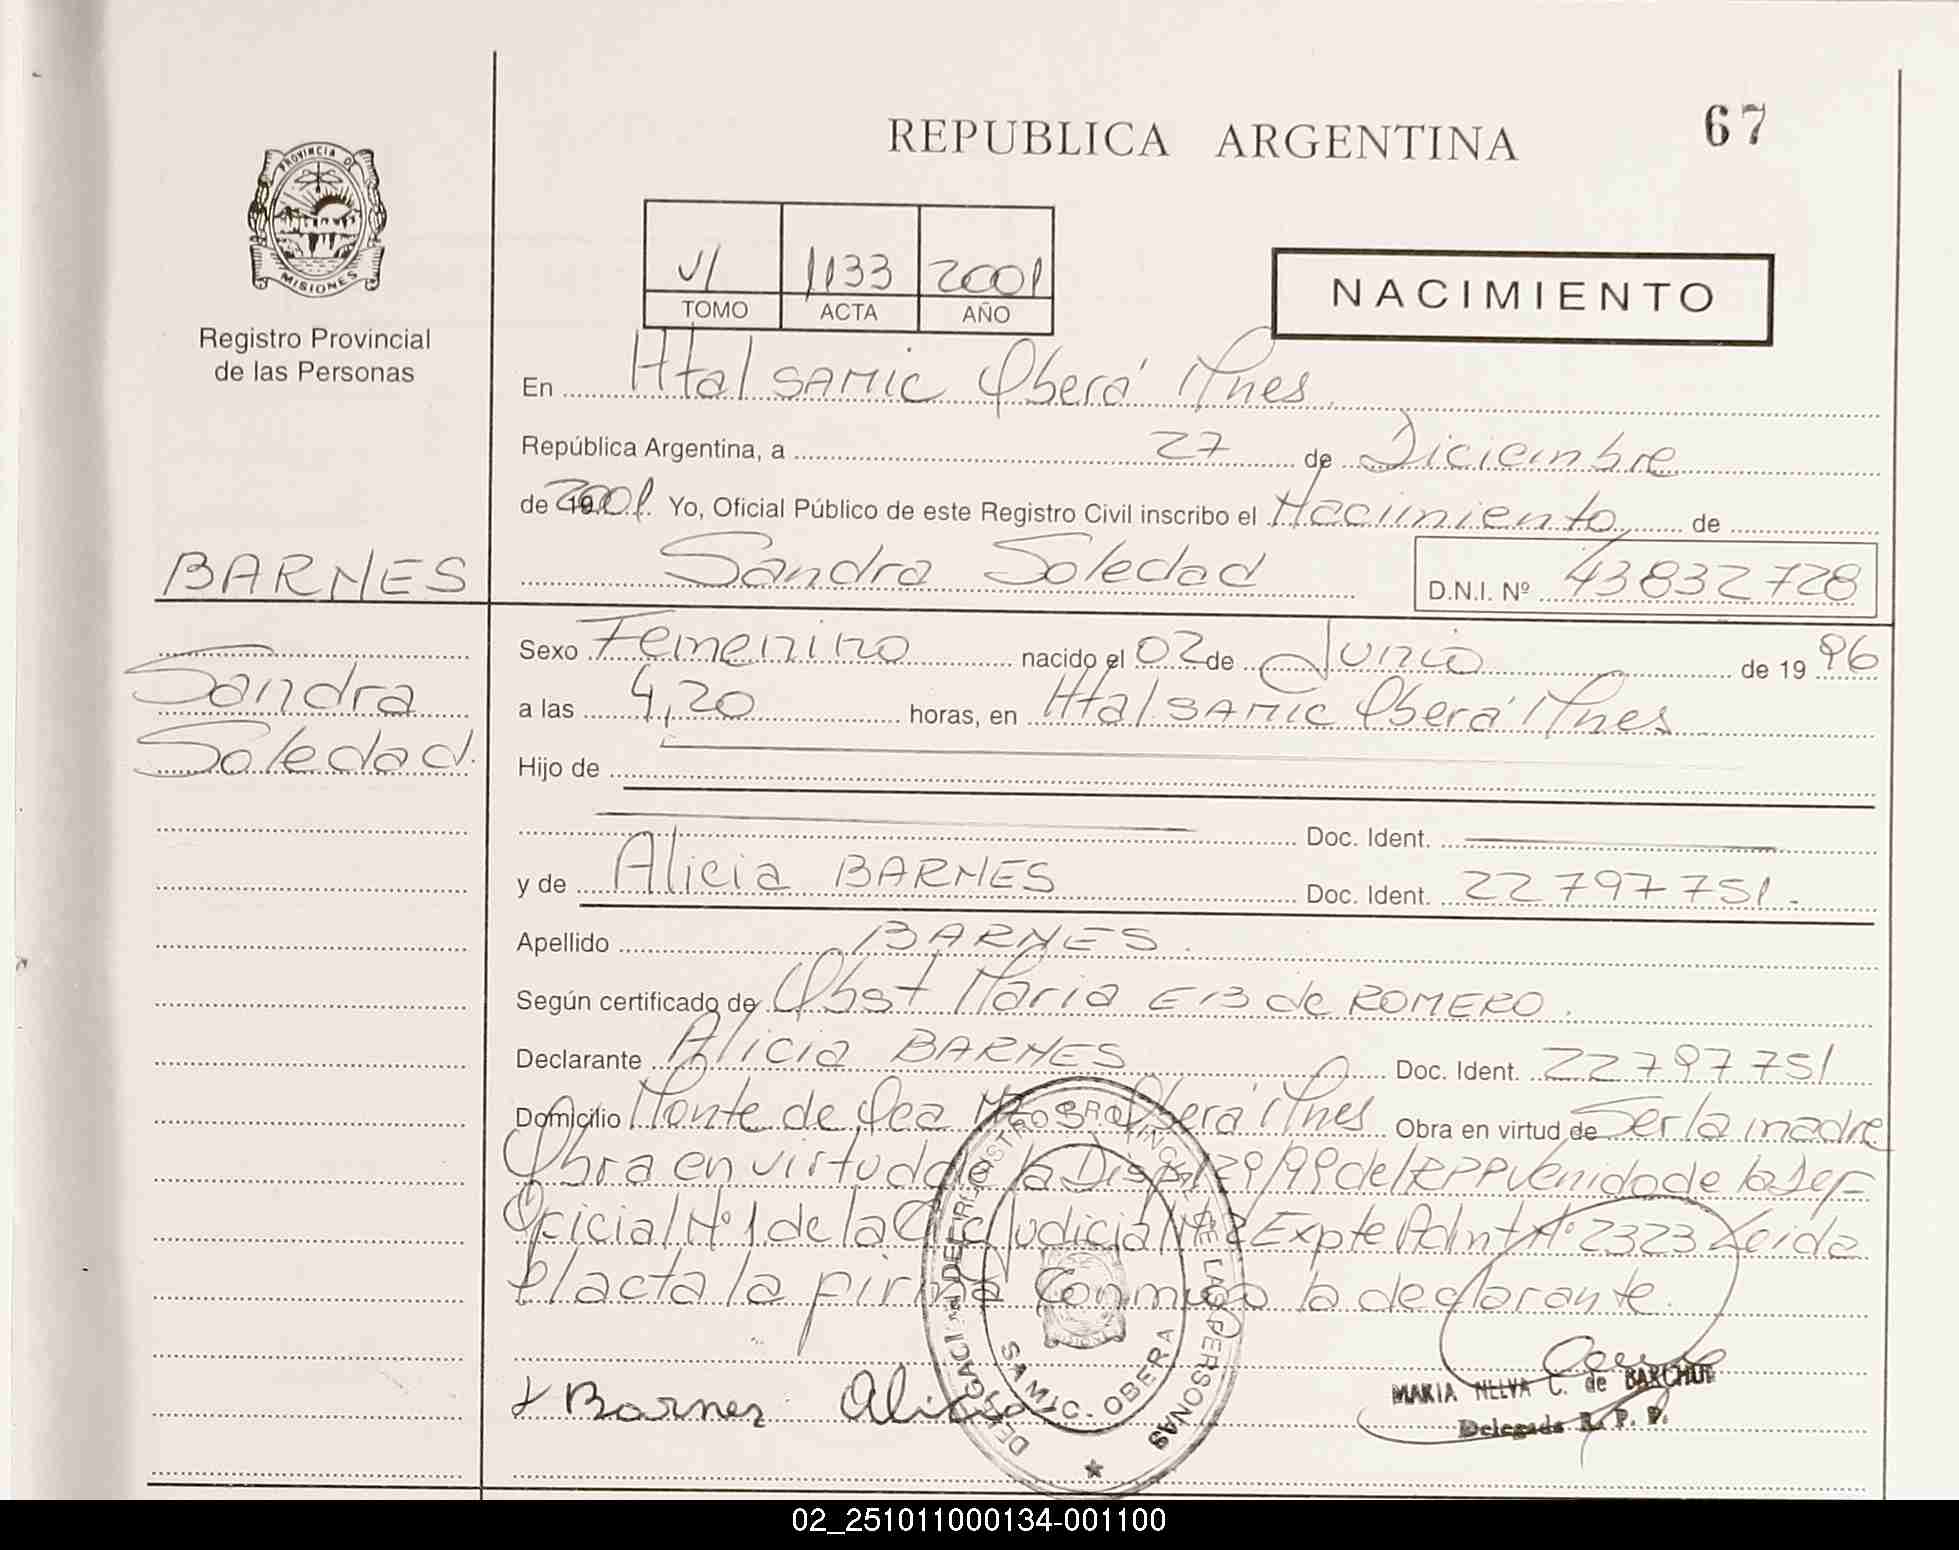 REPUBLICA ARGENTINA
67
PROVINCIA DE
MISIONES
Registro Provincial
de las Personas
VI 1133 2001
TOMO ACTA AÑO
NACIMIENTO
En Htal SAMIC Oberá Mnes
República Argentina, a 27 de Diciembre
de 2001. Yo, Oficial Público de este Registro Civil inscribo el Nacimiento de
BARNES
Sandra Soledad D.N.I. Nº 43832728
Sandra
Soledad.
Sexo Femenino nacido el 02 de Junio de 19 96
a las 4,20 horas, en Htal SAMIC Oberá Mnes
Hijo de
Doc. Ident.
y de Alicia BARNES Doc. Ident. 22797751.
Apellido BARNES.
Según certificado de Obst Maria E B de ROMERO.
Declarante Alicia BARNES Doc. Ident. 22797751
Domicilio Monte de Oca Oberá Mnes Obra en virtud de Ser la madre
Obra en virtud de la Disp 129/99 del RPP Venido de la Def
Oficial Nº 1 de la Judicial Nº 2 Expte Admt Nº 2323 Leida
el acta la firma conmigo la declarante.
Barnes Alicia
DELEGACION DEL REGISTRO PROVINCIAL DE LAS PERSONAS
SAMIC. OBERA
MARIA NELVA C. de BARCHUK
Delegada R. P. P.
02_251011000134-001100